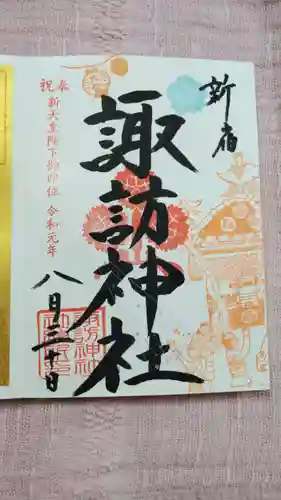 新宿
諏訪神社
奉祝 新天皇陛下御即位 令和元年
八月三十日
諏訪神社